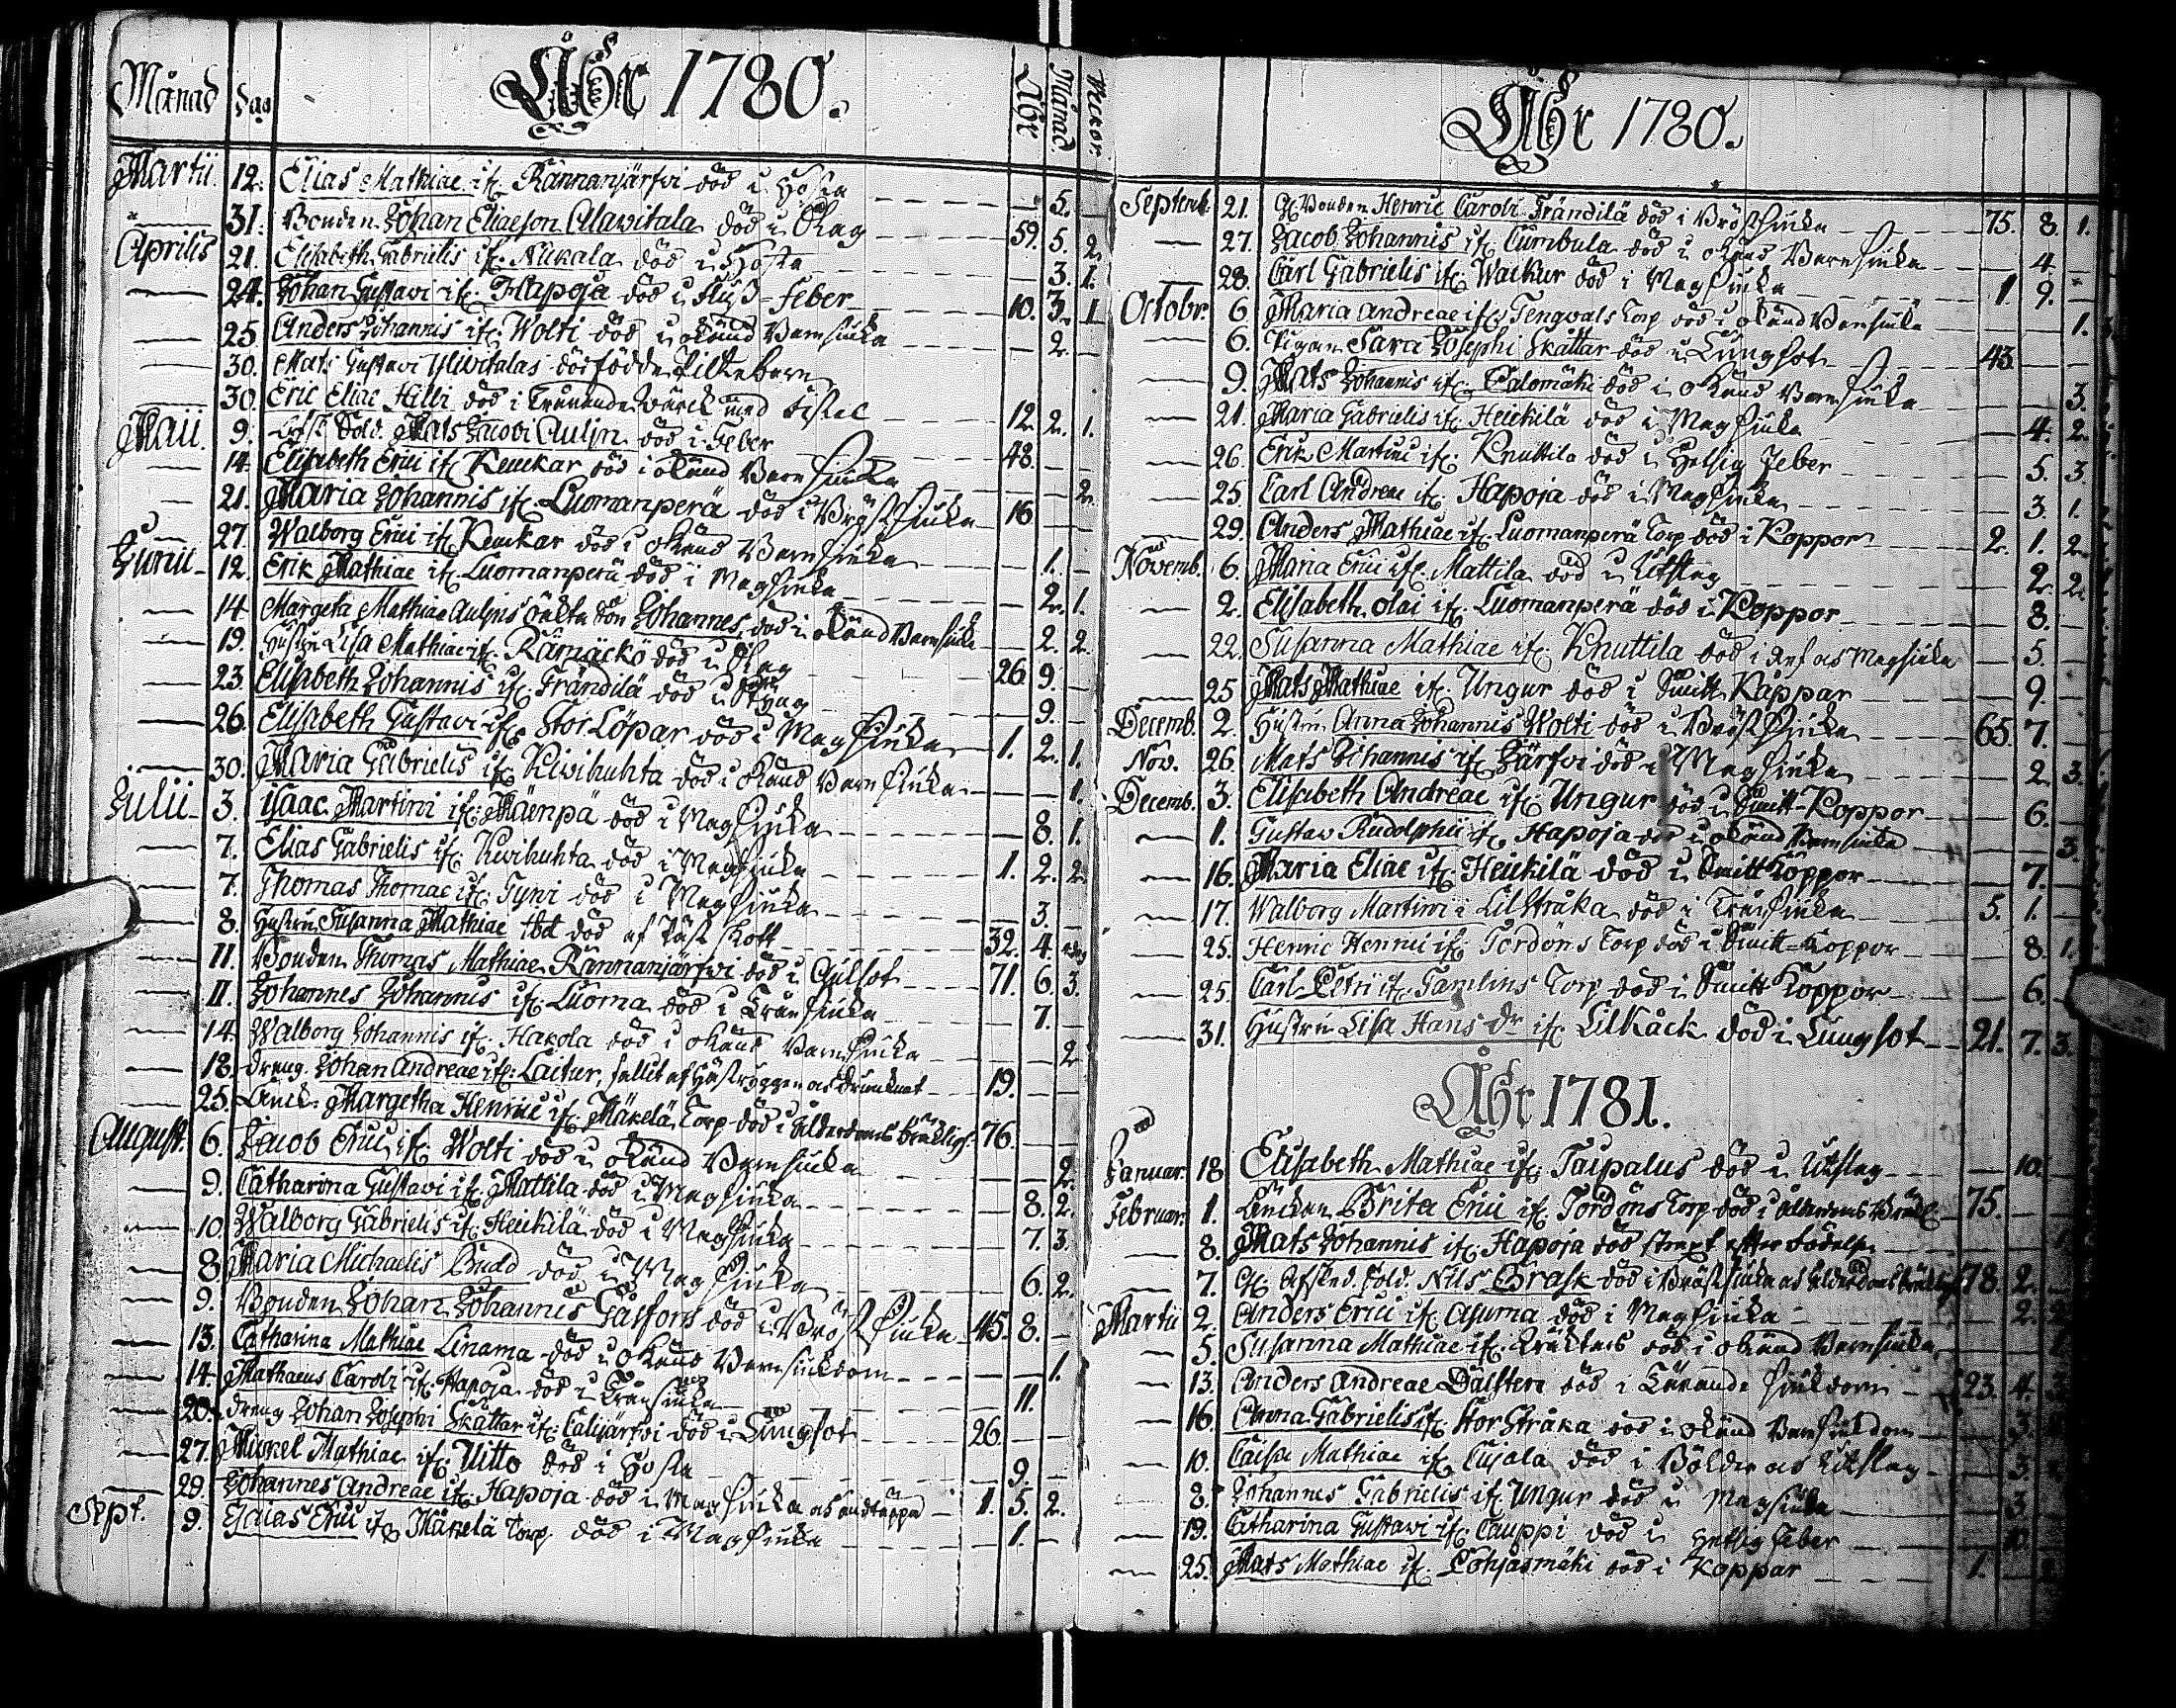 Månad Dag Åhr 1780. Åhr Månad Veckor.
Martii. 12. Elias Mathiae if. Rännanjärfwi död i Hosta 5.
31. Bonden Johan Eliaeson Alawitala död i Stag 59. 5. 2.
Aprilis 21. Elisabeth Gabrielis if. Niikala död i Hosta 3. 1.
24. Johan Gustavi if. Hapoja död i Fluss-feber 10. 3. 1
25. Anders Johannis if. Wolti död i okänd Barnsiuka 2.
30. Mats Gustavi Ylivitalas dödfödde Piltebarn
30. Eric Eliae Hilli död i Tränande wärck med bistel 12. 2. 1.
Maii. 9. Sold. Mats Jacobi Aulin död i Feber 48.
14. Elisabeth Erici if. Keuckar död i okänd Barnsiuka 2.
21. Maria Johannis if. Luomanperä död i Bröstsiuka 16
27. Walborg Erici if. Keuckar död i okänd Barnsiuka 1.
Junii 12. Erik Mathiae if. Luomanperä död i Magsiuka 2. 1.
14. Margeta Mathiae Aulins oäkta Son Johannes, död i okänd Barnsiuka 2. 2.
19. Hustru Lisa Mathiae if. Rämäckö död i Stag 26 9.
23. Elisabeth Johannis if. Frändilä död i Styng 9.
26. Elisabeth Gustavi if. Stor Löpar död i Magsiuka 1. 2. 1.
30. Maria Gabrielis if. Kiwihuhta död i okänd Barnsiuka 1.
Julii 3. Isaac Martini if. Mäenpä död i Magsiuka 8. 1.
7. Elias Gabrielis if. Kiwihuhta död i Magsiuka 1. 2. 2.
7. Thomas Thomae if. Tyni död i Magsiuka 3.
8. Hustru Susanna Mathiae död af 32. 4.
11. Bonden Thomas Mathiae Rännanjärfwi död i Gulsot 71. 6. 3.
11. Johannes Johannis if. Luoma död i Tränsiuka 7.
14. Walborg Johannis if. Hakola död i okänd Barnsiuka 2
18. Dreng. Johan Andreae if. Laitur, fallit af Hästryggen och drunknat 19.
25. Änck. Margetha Henrici if. Mäkelä Torp död i Ålderdoms bräcklig: 76.
August. 6. Jacob Erici if. Wolti död i okänd Barnsiuka 2.
9. Catharina Gustavi if. Mattila död i Magsiuka 8. 2.
10. Walborg Gabrielis if. Heickilä död i Magsiuka 7. 3.
8. Maria Michaelis Budd död i Magsiuka 6. 2.
9. Bonden Johan Johannis Gästfors död i Bröstsiuka 45. 8.
13. Catharina Mathiae Linama död i okänd Barnsiukdom 1.
14. Mathaeus Caroli if. Hapoja död i Tränsiuka 11.
20. Dreng Johan Josephi Skattar if. Calijärfwi död i Lungsot 26.
27. Mickel Mathiae if. Uitto död i Hosta 9.
29. Johannes Andreae if. Hapoja död i Magsiuka och andtäppa 1. 5. 2.
Sept. 9. Esaias Erici if. Mäkelä Torp död i Magsiuka 1.
Åhr 1780.
Septemb. 21. Bonden Henric Caroli Frändilä död i Bröstsiuka 75. 8. 1.
27. Jacob Johannis if. Cumbula död i okänd Barnsiuka 4.
28. Carl Gabrielis if. Wackur död i Magsiuka 1. 9.
Octobr. 6 Maria Andreae if. Tengwals Torp död i okänd Barnsiuka 1.
6. Pigan Sara Josephi Skattar död i Lungsot 43.
9. Mats Johannis if. Palomäki död i okänd Barnsiuka 3.
21. Maria Gabrielis if. Heickilä död i Magsiuka 4. 2.
26. Erik Martini if. Knuttila död i Hetsig Feber 5. 3.
25. Carl Andreae if. Hapoja död i Magsiuka 3. 1.
29. Anders Mathiae if. Luomanperä Torp död i Koppor 2. 1. 2.
Novemb. 6. Maria Erici if. Mattila död i Utslag 2. 2.
2. Elisabeth Olai if. Luomanperä död i Koppor 8.
22. Susanna Mathiae if. Knuttila död i Ref och Magsiuka 5.
25. Mats Mathiae if. Ungur död i Smitt Kåppar 9.
Decemb. 2. Hustru Anna Johannis Wolti död i Bröstsiuka 65. 7.
Nov. 26. Mats Johannis if. Järfwi död i Magsiuka 2. 3.
Decemb. 3. Elisabeth Andreae if. Ungur död i Smitt-Koppor 6.
1. Gustav Rudolphii if. Hapoja död i okänd Barnsiuka 3.
16. Maria Eliae if. Heickilä död i Smitt Koppor 7.
17. Walborg Martini i Lillstråka död i Tränsiuka 5. 1.
25. Henric Henrici if. Tordöns Torp död i Smitt-Koppor 8. 1.
25. Carl Petri if. Tamlins Torp död i Smitt Koppor 6.
31. Hustru Lisa Hans Dr if. Lilkåck död i Lungsot 21. 7. 3.
Åhr 1781.
Januar. 18 Elisabeth Mathiae if. Taipalus död i Utslag 10.
Februar. 1. Änckan Brita Erici if. Tordöns Torp död i Ålderdoms Bräckl. 75.
8. Mats Johannis if. Hapoja död straxt efter Födelsen
7. Afsked. Sold. Nils Brask död i Bröstsiuka och Ålderdoms bräcklighet 78. 2.
Martii 2. Anders Erici if. Asuma död i Magsiuka 2. 2.
5. Susanna Mathiae if. död i okänd Barnsiuka
13. Anders Andreae Dalsten död i Tärande Siukdom 23. 4.
16. Anna Gabrielis if. Stor Stråka död i okänd Barnsiukdom 3.
10. Caisa Mathiae if. Cujala död i Bölder och Utslag 3.
8. Johannes Gabrielis if. Ungur död i Magsiuka 3
19. Catharina Gustavi if. Cauppi död i Hetsig Feber 10.
25. Mats Mathiae if. Pohjasmäki död i Koppar 1.